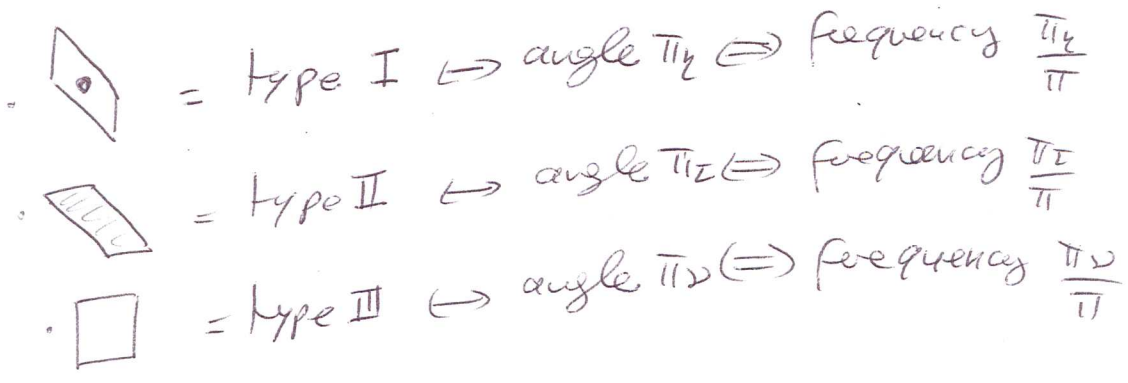 = type I ↔ angle π_η ⇔ frequency π_η/π
= type II ↔ angle π_I ⇔ frequency π_I/π
= type III ↔ angle π_ν ⇔ frequency π_ν/π